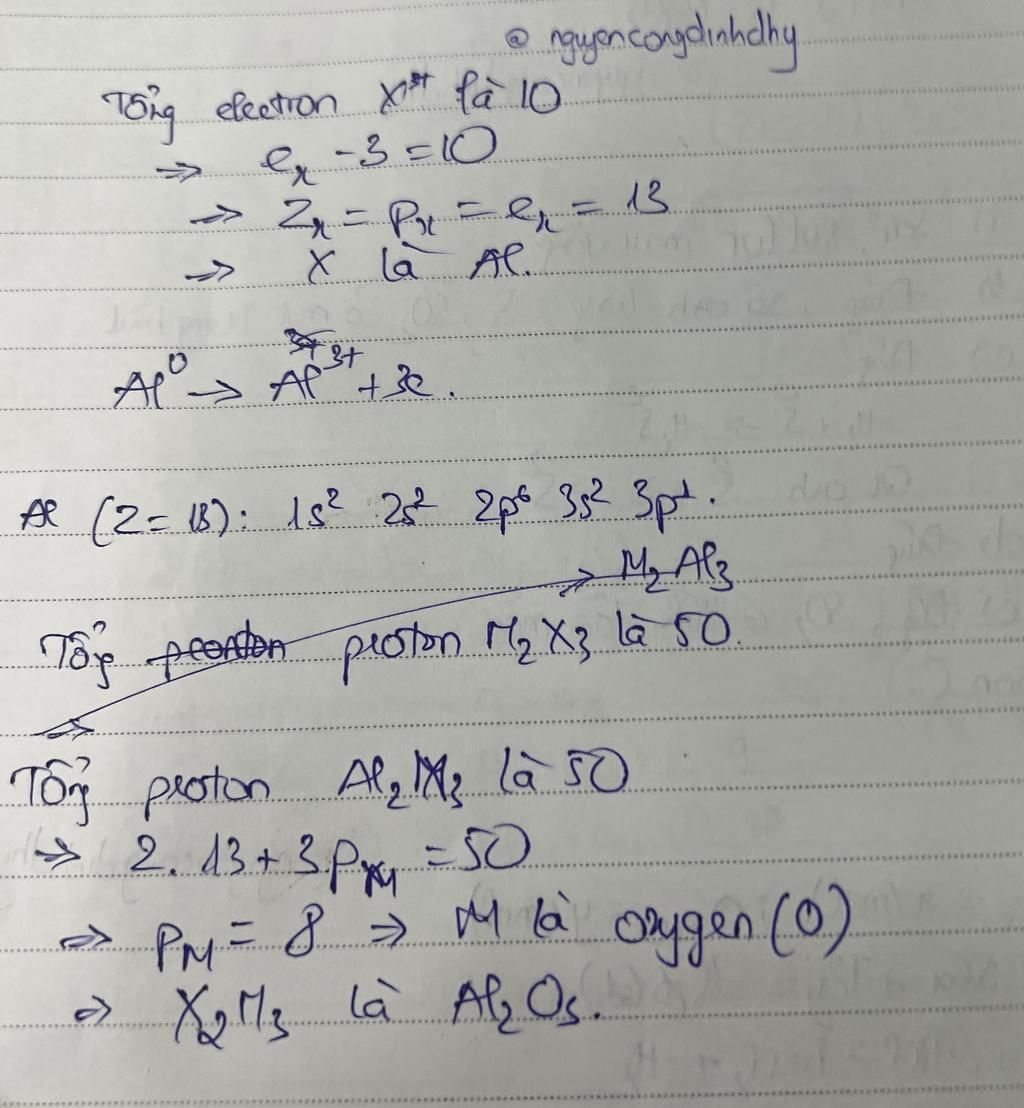 @ nguyencongdinhdhy
Tổng electron X³⁺ là 10
=> eₓ - 3 = 10
=> Zₓ = pₓ = eₓ = 13
=> X là Al.
Al⁰ → Al³⁺ + 3e.
Al (Z = 13): 1s² 2s² 2p⁶ 3s² 3p¹.
→ M₂Al₃
Tổng proton M₂X₃ là 50.
=>
Tổng proton Al₂M₃ là 50
=> 2. 13 + 3p_M = 50
=> p_M = 8 => M là oxygen (O)
=> X₂M₃ là Al₂O₃.